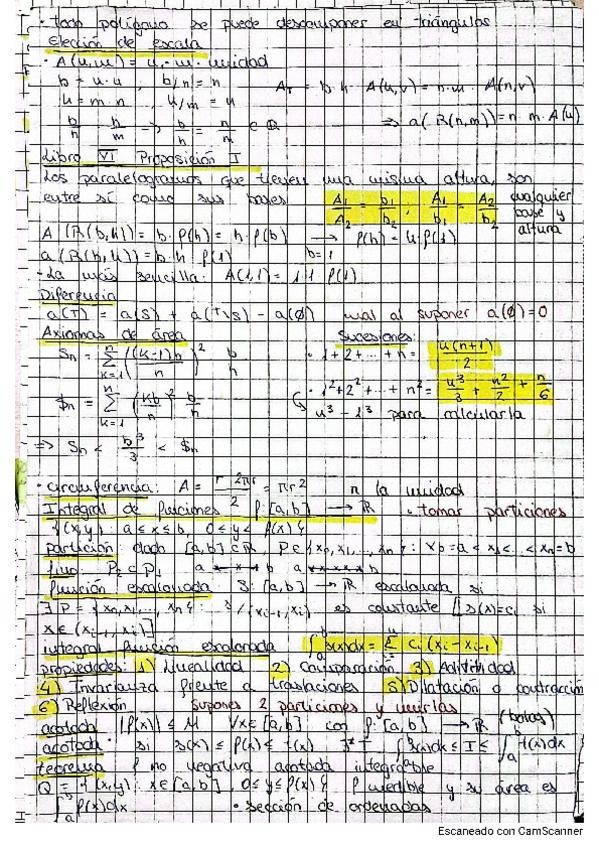 · todo polígono se puede descomponer en triángulos
Elección de escala
· A(u,m) = u · m · unidad
b = u · u , b/n = n A_T = b · h · A(u,v) = n · m · A(n,v)
h = m · n , h/m = u
b/n = h/m ⇒ b/h = n/m ∈ Q ⇒ a(R(n,m)) = n · m · A(u)
Libro VI Proposición I
Los paralelogramos que tienen una misma altura, son
entre sí como sus bases A1/A2 = b1/b2 ; A1/b1 = A2/b2 cualquier base y altura
A(R(b,h)) = b · f(h) = h · f(b) → f(h) = h · f(1)
a(R(b,h)) = b · h · f(1) b=1
· La más sencilla: A(1,1) = 1·1 · f(1)
Diferencia
a(T) = a(S) + a(T\S) - a(Ø) mal al suponer a(Ø)=0
Axiomas de área Sucesiones
Sn = Σ_{k=1}^{n} ((k-1)b/n)² b/n · 1+2+...+n = n(n+1)/2
$n = Σ_{k=1}^{n} (kb/n)² b/n · 1²+2²+...+n² = n³/3 + n²/2 + n/6
n³ - 1³ para calcularla
⇒ Sn < b³/3 < $n
· circunferencia: A = r · 2πr/2 = πr² π la unidad
Integral de funciones f: [a,b] → R · tomar particiones
{(x,y): a ≤ x ≤ b, 0 ≤ y ≤ f(x)}
Partición dado [a,b] ⊂ R, P = {x0, x1, ..., xn}: x0 = a < x1 < ... < xn = b
fina P2 ⊂ P1
función escalonada S: [a,b] → R escalonada si
∃ P = {x0, x1, ..., xn}: s/(xi-1, xi) es constante [[s(x)=ci si
x ∈ (xi-1, xi)]
integral función escalonada ∫_a^b s(x)dx = Σ ci (xi - xi-1)
propiedades: 1) Linealidad 2) Comparación 3) Aditividad
4) Invarianza frente a traslaciones 5) Dilatación o contracción
6) Reflexión supones 2 particiones y unirlas
acotada |f(x)| ≤ M ∀x∈[a,b] con f: [a,b] → R
acotada si s(x) ≤ f(x) ≤ t(x) ∫ s(x)dx ≤ I ≤ ∫_a^b t(x)dx
teorema f no negativa acotada integrable
Q = {(x,y): x∈[a,b], 0≤y≤f(x)} f medible y su área es
∫_a^b f(x)dx · sección de ordenadas
Escaneado con CamScanner